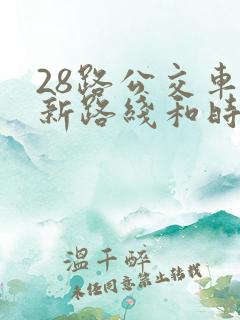 28路公交车
新路线和时
温千醉
未经同意禁止转载